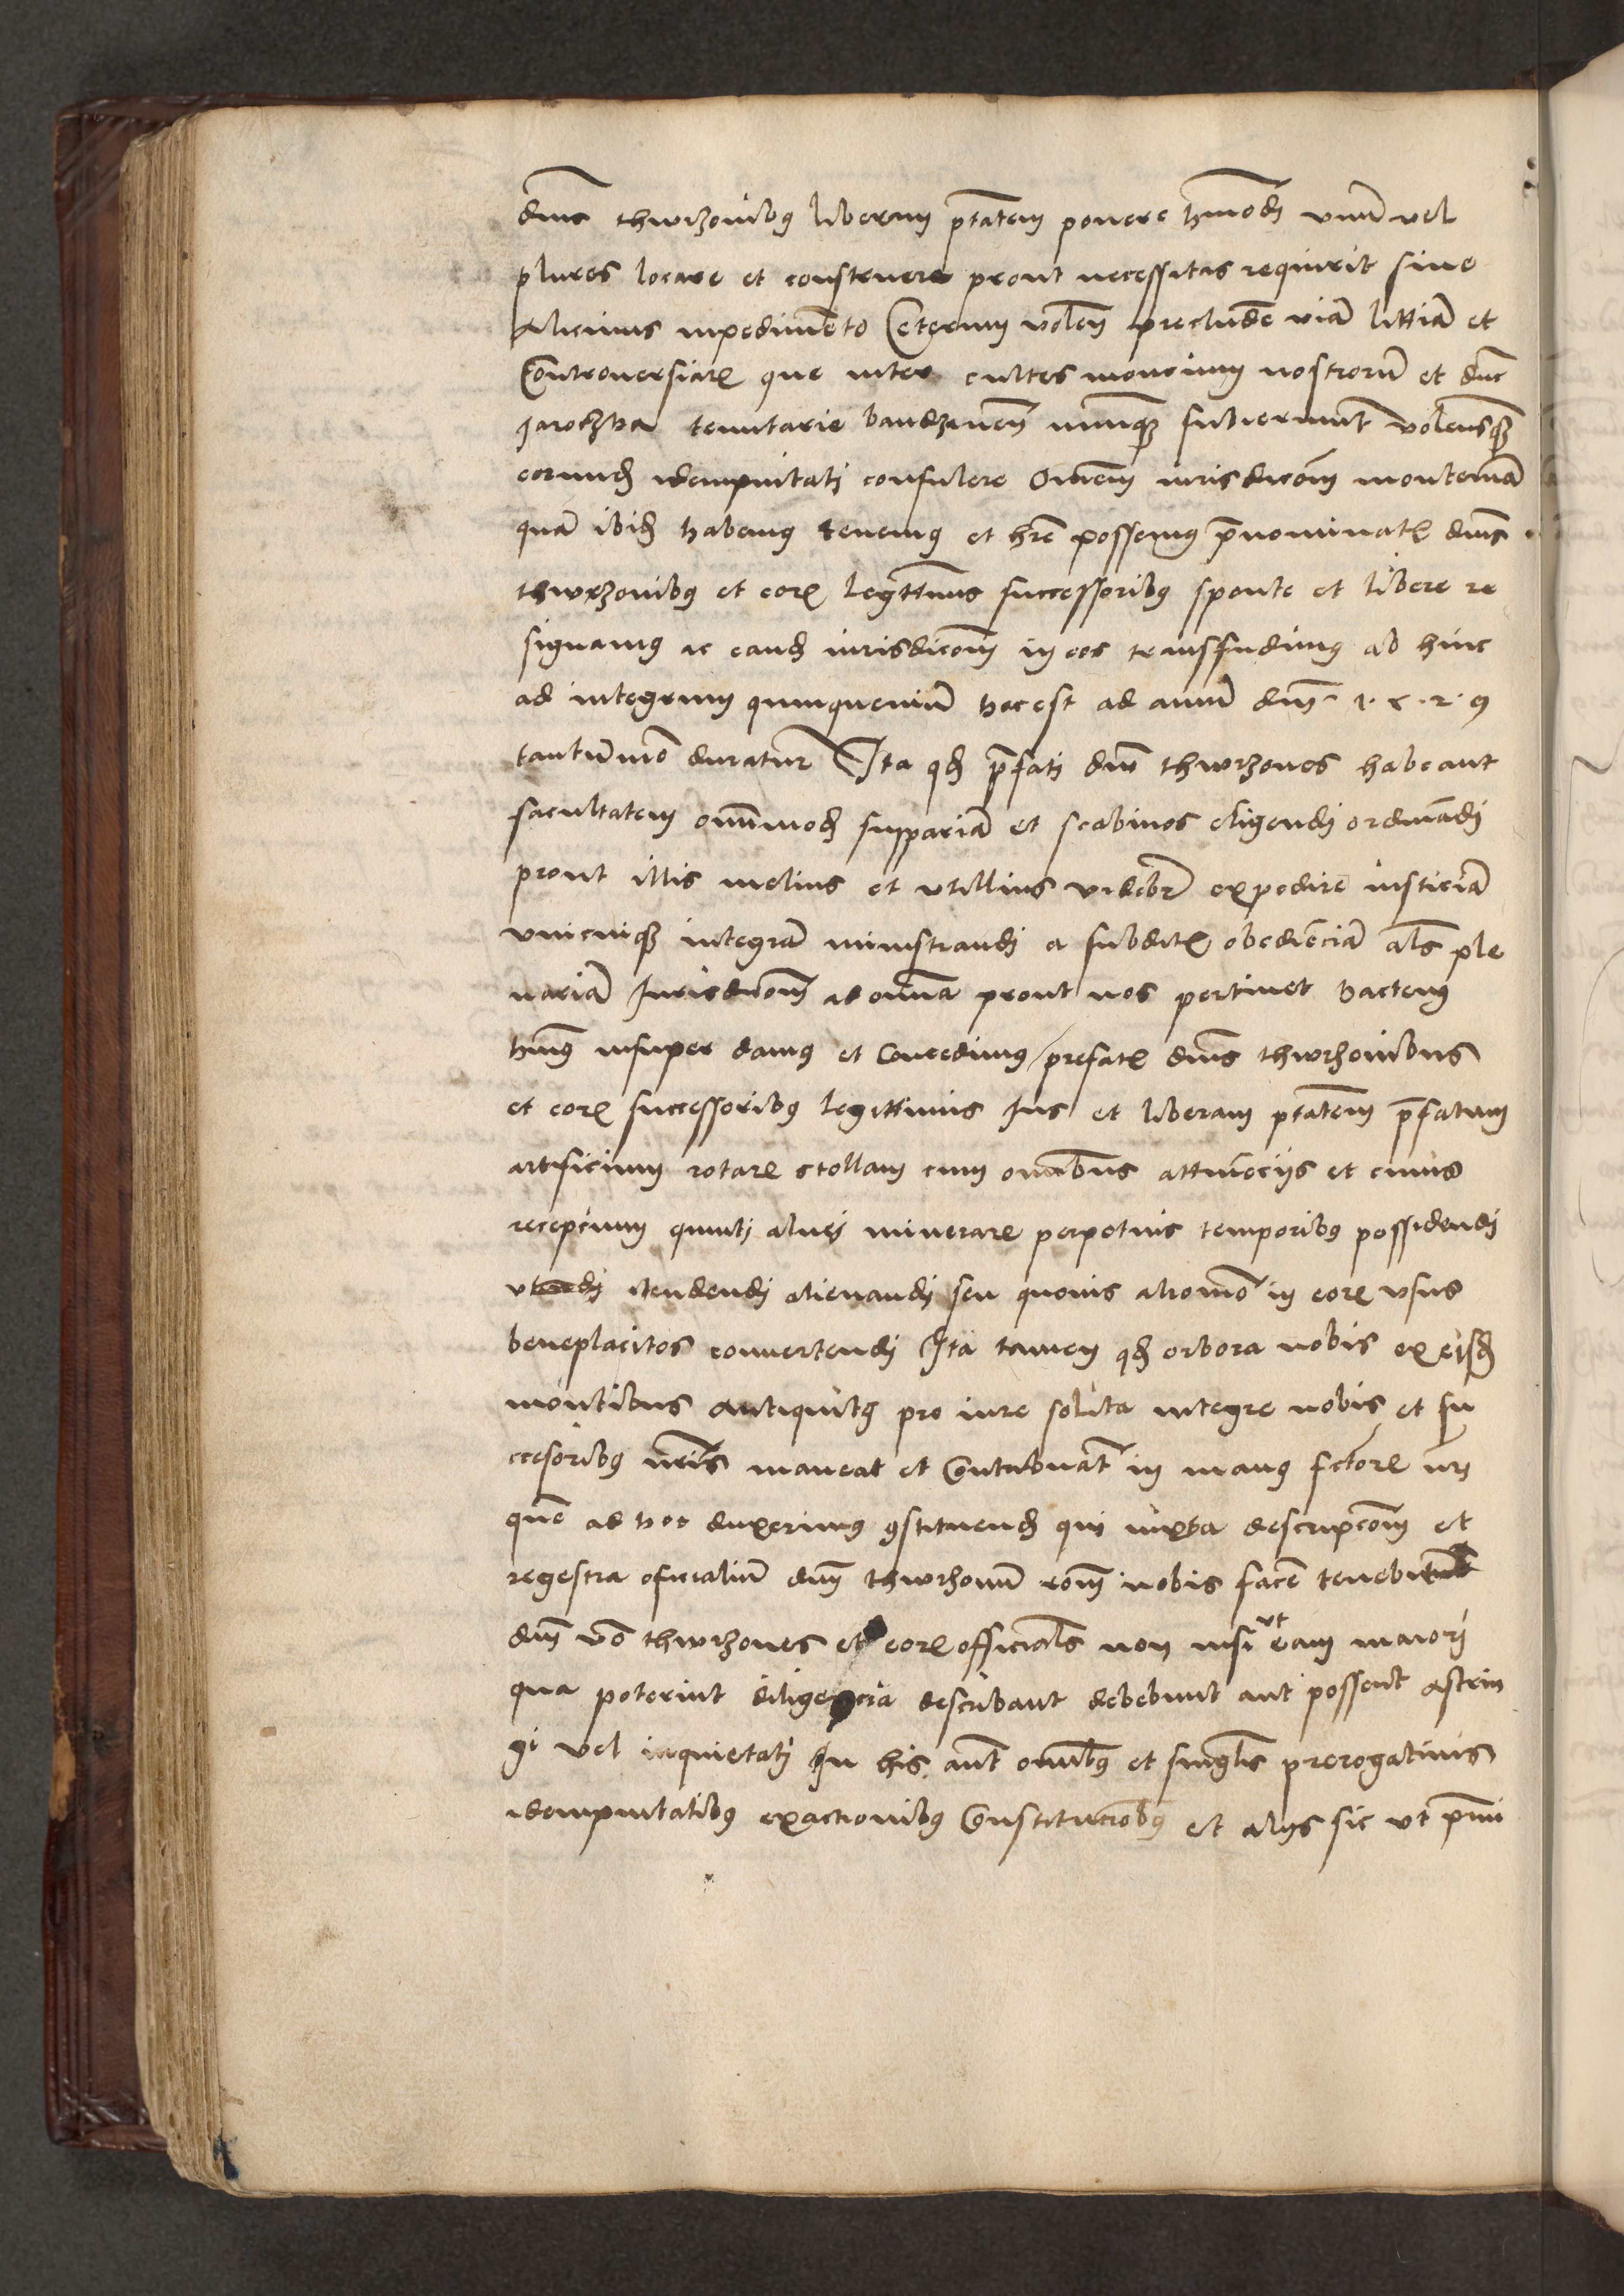 dnis thwrzonibus liberam ptatem ponere hmodi vnu vel
plures locare et construere prout necessitas requirit sine
Alicuius inpedimento Ceterum volen precludere via littia et
Controuersiar que inter cultes moncium nostrorum et dnc
Jarotzka tenutarie bandzinen nunq subierunt volensq
eorund idempnitati consulere Omnem iurisdicom montana
qua ibid habemus tenemus et hre possemus prenominat dnis
thwrzonibus et eor legittimis successoribus sponte et libere re
signamus ac eand iurisdicom in eos transfudimus ab hinc
ad integrum quinqueniu hoc est ad annu dni 1 5 2 9
tantumo duratur Ita qd prefati dni thwrzones habeant
facultatem omnimod suppariam et scabinos eligendi ordinandi
prout illis melius et vtillius videbr expedire iusticia
vnicuiq integra ministrandi a subdit obediencia als ple
naria Jurisdicom ad omnia prout nos pertinet hactenus
hmus insuper damus et Concedimus prefat dnis thwrzonibus
et eor successoribus legittimis Jus et liberam ptatem prefatum
artificium rotar stollam cum omnibus attinenciis et cuius
recepcium quinti aluei minerar perpetuis temporibus possidendi
vtendi vendendi alienandi seu quouis aliomo in eor vsus
beneplacitos conuertendi Ita tamen qd orbora nobis ex eisd
montibus antiquitus pro iure solita integre nobis et su
ccesoribus nris maneat et Contribuat in manus fctor nri
que ad hoc duxerimus constituend qui iuxta descripcom et
regestra oficialiu dnm thwrzonu rom nobis face tenebitur
dni vo thwrzones et eor officials non nisi vt eam maiori
qua poterint diligencia describant debebunt aut possent astrin
gi vel inquietati In his aut omnibus et singlis prerogatiuis
idempnitatibus exactionibus Constitucionbus et aliis sic vt premi